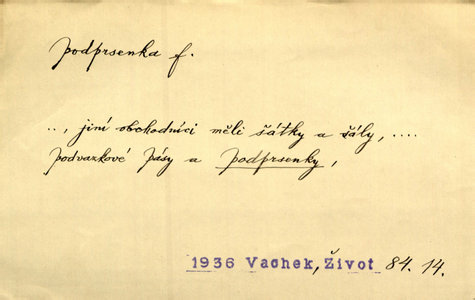 podprsenka f.
.., jiní obchodníci měli šátky a šály, ....
podvazkové pásy a podprsenky,
1936 Vachek, Život 84. 14.